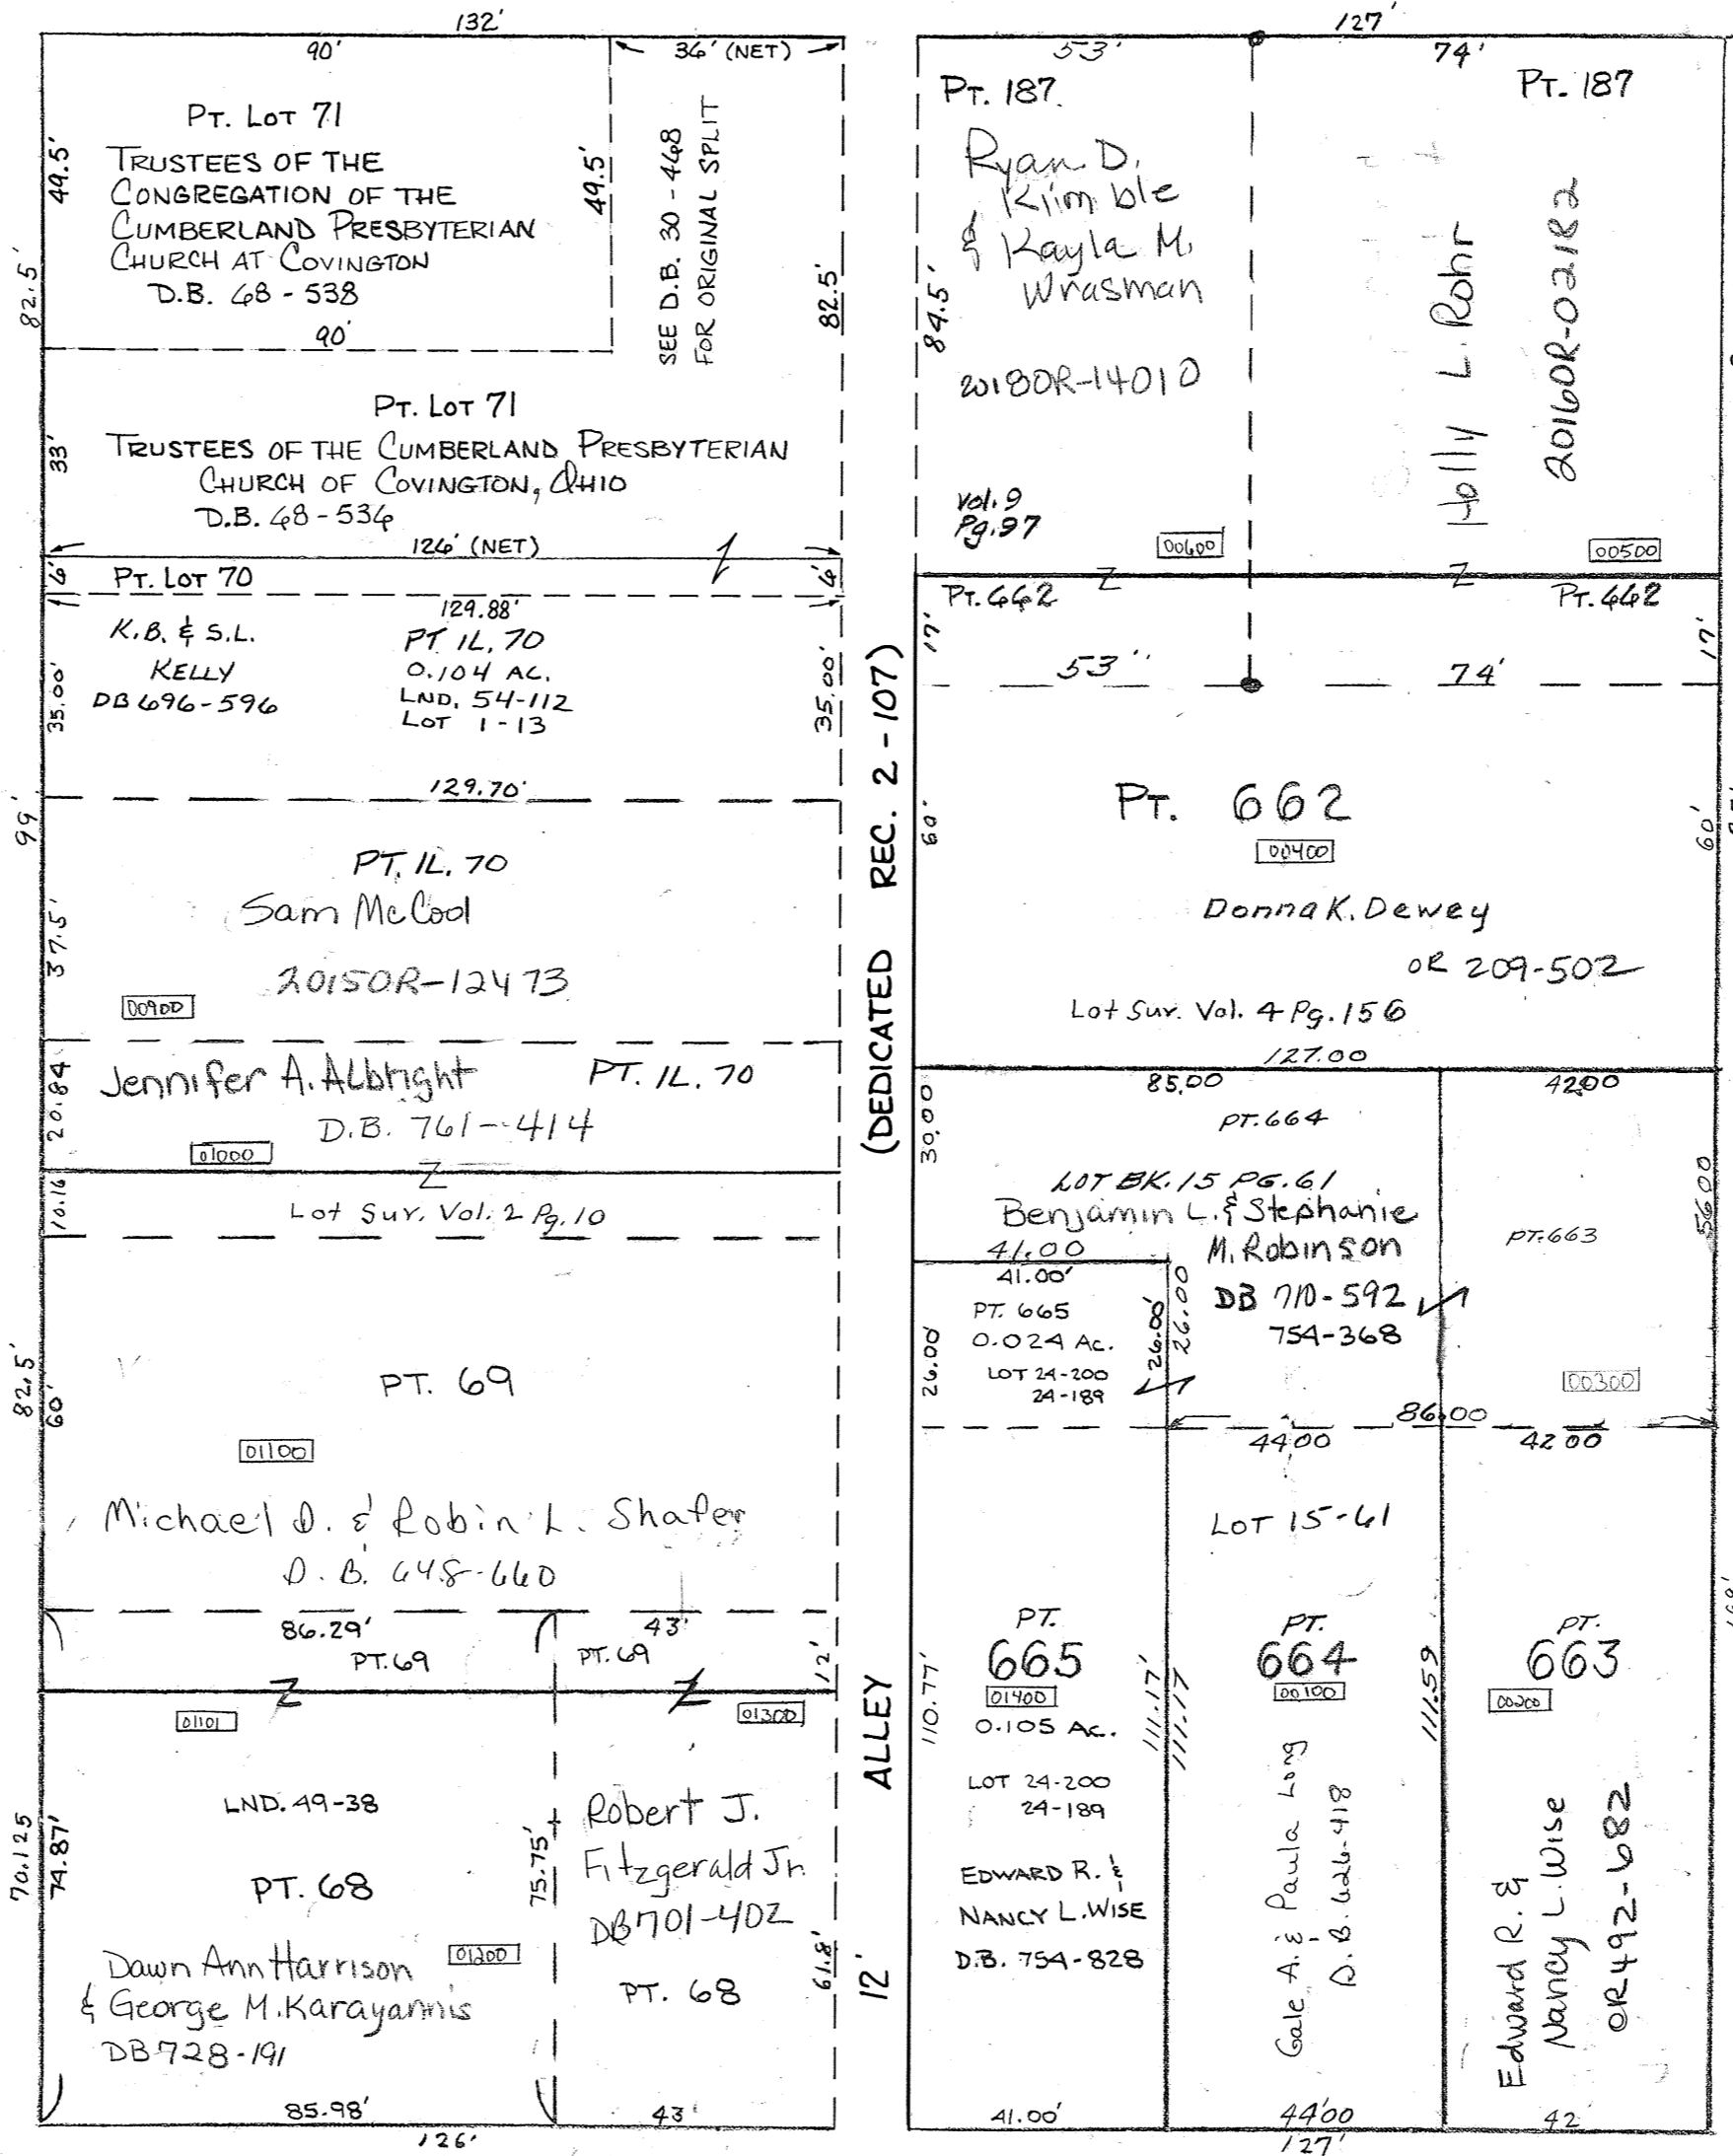 132'
90'
36' (NET)
PT. LOT 71
TRUSTEES OF THE
CONGREGATION OF THE
CUMBERLAND PRESBYTERIAN
CHURCH AT COVINGTON
D.B. 68 - 538
49.5'
49.5'
82.5'
90'
SEE D.B. 30 - 468
FOR ORIGINAL SPLIT
82.5'
PT. LOT 71
TRUSTEES OF THE CUMBERLAND PRESBYTERIAN
CHURCH OF COVINGTON, OHIO
D.B. 68 - 536
33'
126' (NET)
6'
PT. LOT 70
6'
129.88'
K.B. & S.L.
KELLY
DB 696-596
PT IL. 70
0.104 AC.
LND. 54-112
LOT 1-13
35.00'
35.00'
99'
129.70'
PT. IL. 70
Sam McCool
2015OR-12473
37.5'
00900
20.84
Jennifer A. Albright
PT. IL. 70
D.B. 761-414
01000
10.16
Lot Sur. Vol. 2 Pg. 10
82.5'
60'
PT. 69
01100
Michael D. & Robin L. Shafer
D.B. 648-660
86.29'
43'
PT. 69
PT. 69
12'
01101
01300
LND. 49-38
PT. 68
70.125
74.87'
75.75'
Robert J.
Fitzgerald Jr.
DB 701-402
PT. 68
61.8'
Dawn Ann Harrison
& George M. Karayannis
DB 728-191
01200
85.98'
43'
126'
12' ALLEY (DEDICATED REC. 2 - 107)
127'
53'
74'
PT. 187.
PT. 187
Ryan D.
Kimble
& Kayla M.
Wrasman
2018OR-14010
84.5'
Vol. 9
Pg. 97
00600
Holly L. Rohr
2016OR-02182
00500
PT. 662
PT. 662
17'
17'
53'
74'
PT. 662
00400
60'
60'
Donna K. Dewey
OR 209-502
Lot Sur. Vol. 4 Pg. 156
127.00
85.00
42.00
30.00
PT. 664
LOT BK. 15 PG. 61
Benjamin L. & Stephanie
M. Robinson
DB 710-592
754-368
PT. 663
56.00
00300
41.00
41.00'
PT. 665
0.024 AC.
LOT 24-200
24-189
26.00'
26.00'
26.00
86.00
44.00
42.00
LOT 15-61
PT.
665
01400
0.105 AC.
LOT 24-200
24-189
EDWARD R. &
NANCY L. WISE
D.B. 754-828
110.77'
111.17'
111.17
PT.
664
00100
Gale A. & Paula Long
D.B. 626-418
111.59
PT.
663
00200
Edward R. &
Nancy L. Wise
OR 492-682
41.00'
44.00
42
127'